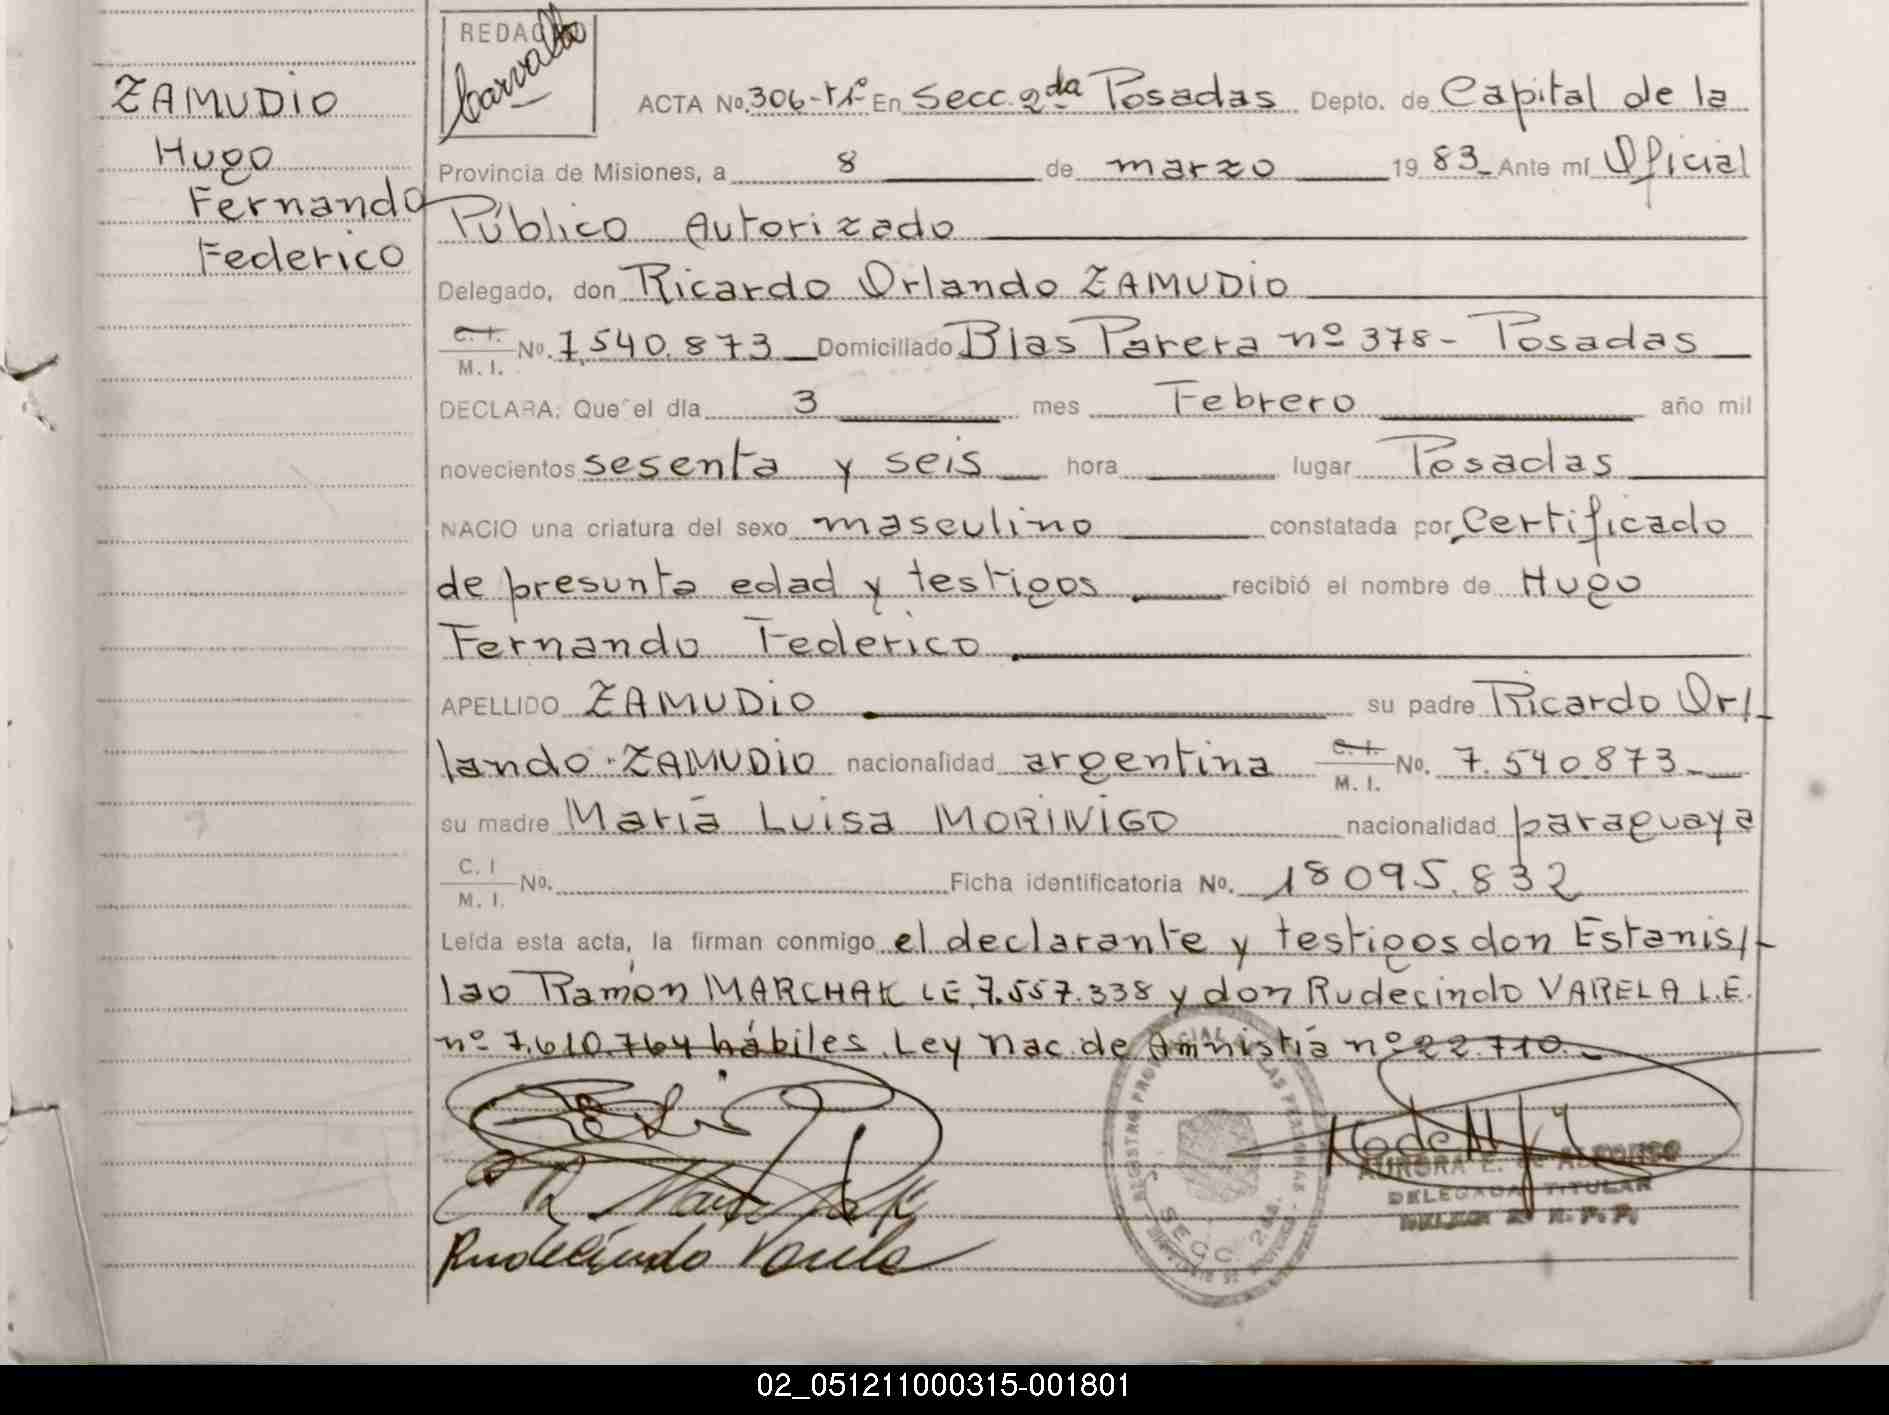 REDACTO
Carvallo
ZAMUDIO
Hugo
Fernando
Federico
ACTA No. 306-T1º En Secc. 2da Posadas Depto. de Capital de la
Provincia de Misiones, a 8 de marzo 19 83 Ante mí Oficial
Público Autorizado
Delegado, don Ricardo Orlando ZAMUDIO
C. I. / M. I. No. 7.540.873 Domiciliado Blas Parera nº 378 - Posadas
DECLARA: Que el día 3 mes Febrero año mil
novecientos sesenta y seis hora lugar Posadas
NACIO una criatura del sexo masculino constatada por Certificado
de presunta edad y testigos recibió el nombre de Hugo
Fernando Federico
APELLIDO ZAMUDIO su padre Ricardo Or/
lando ZAMUDIO nacionalidad argentina C. I. / M. I. No. 7.540.873
su madre María Luisa MORINIGO nacionalidad paraguaya
C. I / M. I. No. Ficha identificatoria No. 18095.832
Leída esta acta, la firman conmigo el declarante y testigos don Estanis/
lao Ramón MARCHAK LE 7.557.338 y don Rudecindo VARELA L.E.
nº 7.610.764 hábiles. Ley Nac. de Amnistía nº 22.710.
Rudecindo Varela
REGISTRO PROVINCIAL DE LAS PERSONAS
SECC. 2da.
AURORA E. de ALFONSO
DELEGADA TITULAR
R. P. P.
02_051211000315-001801